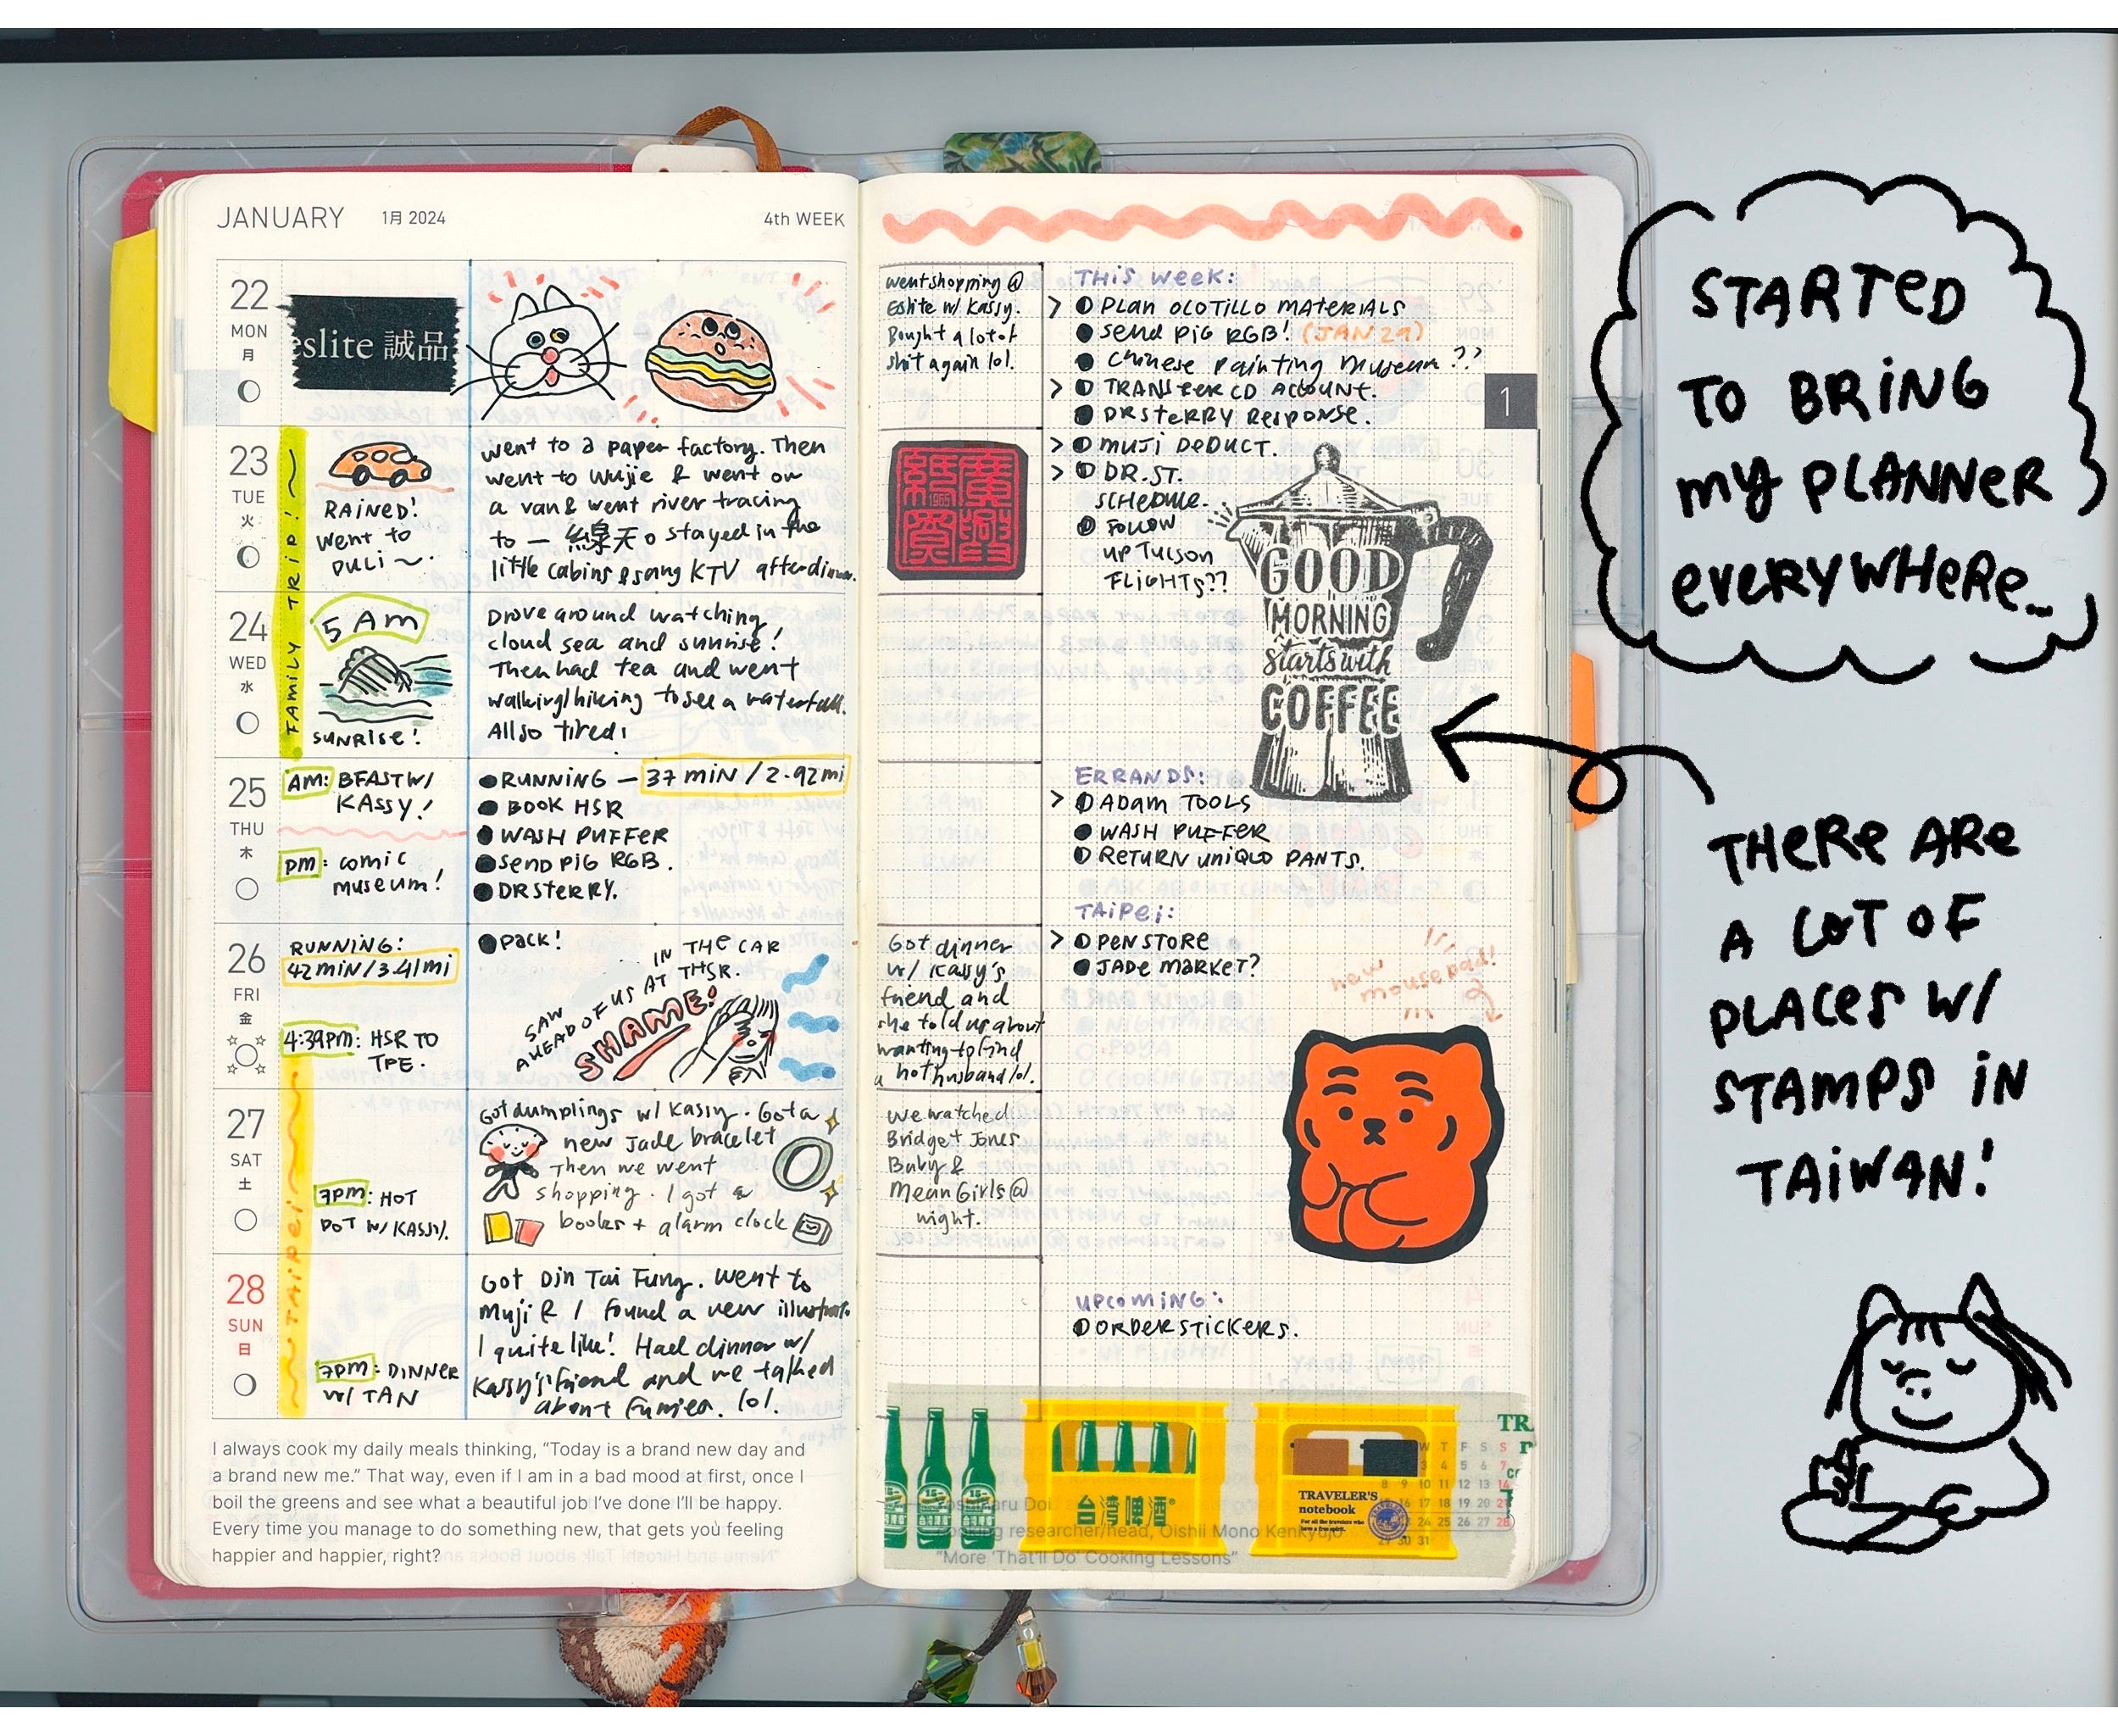 JANUARY 1月 2024 4th WEEK
22
MON
月
eslite 誠品
23
TUE
火
FAMILY TRIP!
RAINED!
WENT TO
PULI ~
went to a paper factory. Then
went to Wujie & went on
a van & went river tracing
to 一線天。stayed in the
little cabins & sang KTV after dinner.
24
WED
水
5 AM
SUNRISE!
Drove around watching
cloud sea and sunrise!
Then had tea and went
walking/hiking to see a waterfall.
All so tired!
25
THU
木
AM: BFAST W/
KASSY!
PM: comic
museum!
RUNNING — 37 MIN / 2.92mi
BOOK HSR
WASH PUFFER
SEND PIG RGB.
DR STERRY.
26
FRI
金
RUNNING:
42 MIN/3.41mi
4:39pm: HSR TO
TPE.
PACK!
SAW
AHEAD OF US AT THSR.
IN THE CAR
SHAME!
27
SAT
土
TAIPEI
7pm: HOT
POT W/ KASSY.
Got dumplings w/ Kassy. Got a
new jade bracelet
Then we went
shopping. I got a
books + alarm clock
28
SUN
日
7pm: DINNER
W/ TAN
Got Din Tai Fung. Went to
Muji & I found a new
I quite like! Had dinner w/
Kassy's friend and we talked
about lol.
I always cook my daily meals thinking, “Today is a brand new day and
a brand new me.” That way, even if I am in a bad mood at first, once I
boil the greens and see what a beautiful job I’ve done I’ll be happy.
Every time you manage to do something new, that gets you feeling
happier and happier, right?
went shopping @
Eslite w/ Kassy.
Bought a lot of
shit again lol.
廣興
紙寮
1965
Got dinner
w/ Kassy's
friend and
she told us about
wanting to find
a hot husband lol.
We watched
Bridget Jones
Baby &
Mean Girls @
night.
THIS WEEK:
> PLAN OCOTILLO MATERIALS
SEND PIG RGB! (JAN 29)
Chinese Painting Museum??
> TRANSFER CD ACCOUNT.
DR STERRY RESPONSE.
> MUJI DEDUCT.
> DR. ST.
SCHEDULE.
FOLLOW
UP TUCSON
FLIGHTS??
1
GOOD
MORNING
starts with
COFFEE
ERRANDS:
> ADAM TOOLS
WASH PUFFER
RETURN UNIQLO PANTS.
TAIPEI:
> PEN STORE
JADE MARKET?
new
mousepad!
UPCOMING:
ORDER STICKERS.
台湾啤酒
TRAVELER'S
notebook
For all the travelers who
have a free spirit.
W T F S S
3 4 5 6 7
8 9 10 11 12 13 14
15 16 17 18 19 20 21
24 25 26 27 28
29 30 31
Yoshiharu Doi
Cooking researcher/head, Oishii Mono Kenkyujo
“More ‘That’ll Do’ Cooking Lessons”
STARTED
TO BRING
MY PLANNER
EVERYWHERE..
THERE ARE
A LOT OF
PLACES W/
STAMPS IN
TAIWAN!